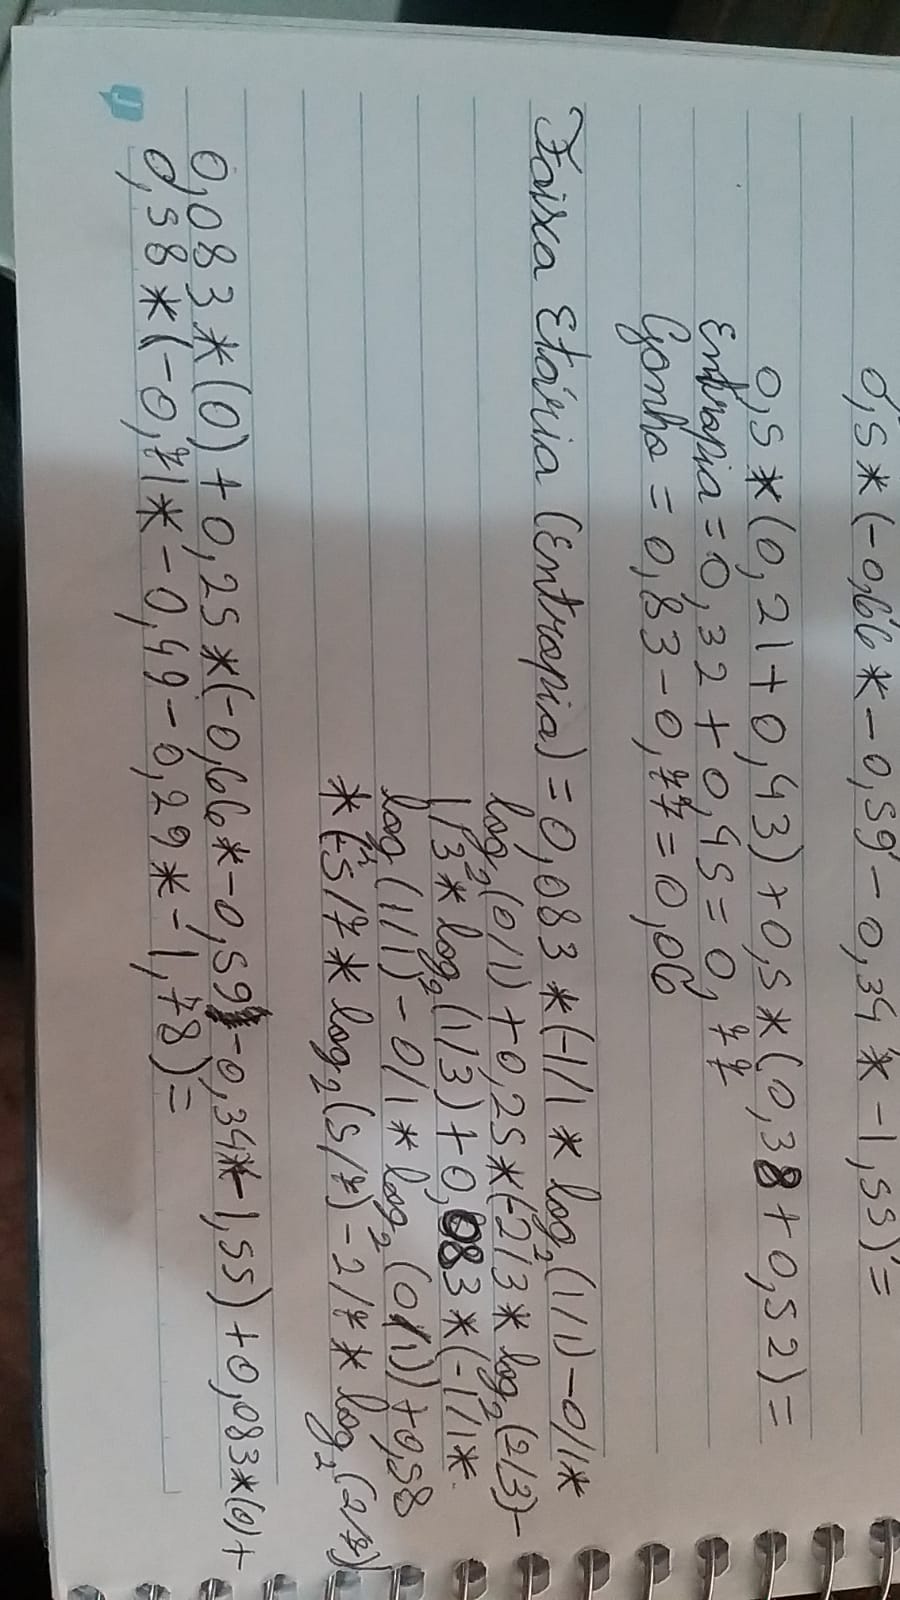 0,5*(-0,66*-0,59-0,34*-1,55)=
0,5*(0,21+0,43)+0,5*(0,38+0,52)=
Entropia=0,32+0,45=0,77
Ganho=0,83-0,77=0,06
Faixa Etária (Entropia)=0,083*(-1/1*log₂(1/1)-0/1*
log₂(0/1)+0,25*(-2/3*log₂(2/3)-
1/3*log₂(1/3)+0,083*(-1/1*
log₂(1/1)-0/1*log₂(0/1))+0,58
*(-5/7*log₂(5/7)-2/7*log₂(2/7)
0,083*(0)+0,25*(-0,66*-0,59-0,34*-1,55)+0,083*(0)+
0,58*(-0,71*-0,49-0,29*-1,78)=
J